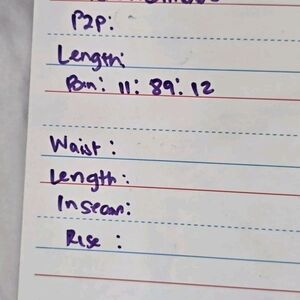 P2P:
Length:
11: 89: 12
Waist:
Length:
Inseam:
Rise: